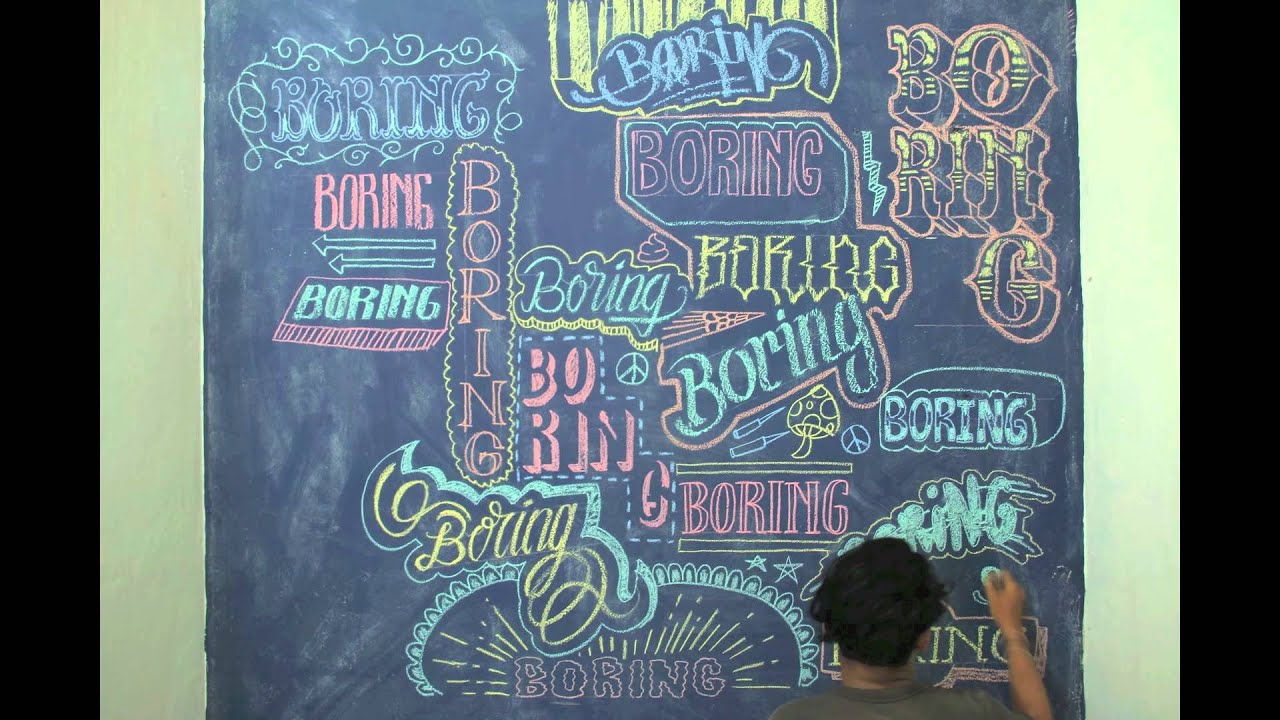 BORING
BORING
BO
RIN
G
BORING
BORING
BORING
BORING
BORING
Boring
BORING
Boring
BO
RIN
G
BORING
BORING
Boring
BORING